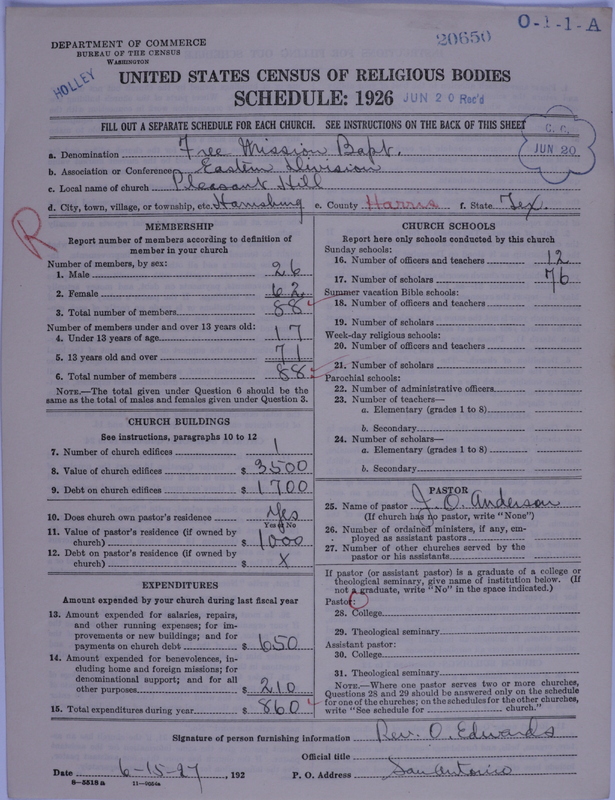 O-1-1-A
20650
DEPARTMENT OF COMMERCE
BUREAU OF THE CENSUS
WASHINGTON
HOLLEY
UNITED STATES CENSUS OF RELIGIOUS BODIES
SCHEDULE: 1926
JUN 20 Rec'd
FILL OUT A SEPARATE SCHEDULE FOR EACH CHURCH. SEE INSTRUCTIONS ON THE BACK OF THIS SHEET
C. C.
JUN 20
a. Denomination Free Mission Bapt.
b. Association or Conference Eastern Division
c. Local name of church Pleasant Hill
d. City, town, village, or township, etc. Harrisburg e. County Harris f. State Tex.
R
MEMBERSHIP
Report number of members according to definition of
member in your church
Number of members, by sex:
1. Male 26
2. Female 62
3. Total number of members 88
Number of members under and over 13 years old:
4. Under 13 years of age 17
5. 13 years old and over 71
6. Total number of members 88
NOTE.—The total given under Question 6 should be
same as the total of males and females given under Question 3.
CHURCH BUILDINGS
See instructions, paragraphs 10 to 12
7. Number of church edifices 1
8. Value of church edifices $ 3500
9. Debt on church edifices $ 1700
10. Does church own pastor's residence Yes
Yes or No
11. Value of pastor's residence (if owned by
church) $ 1000
12. Debt on pastor's residence (if owned by
church) $ X
EXPENDITURES
Amount expended by your church during last fiscal year
13. Amount expended for salaries, repairs,
and other running expenses; for im-
provements or new buildings; and for
payments on church debt $ 650
14. Amount expended for benevolences, in-
cluding home and foreign missions; for
denominational support; and for all
other purposes $ 210
15. Total expenditures during year $ 860
CHURCH SCHOOLS
Report here only schools conducted by this church
Sunday schools:
16. Number of officers and teachers 12
17. Number of scholars 76
Summer vacation Bible schools:
18. Number of officers and teachers
19. Number of scholars
Week-day religious schools:
20. Number of officers and teachers
21. Number of scholars
Parochial schools:
22. Number of administrative officers
23. Number of teachers—
a. Elementary (grades 1 to 8)
b. Secondary
24. Number of scholars—
a. Elementary (grades 1 to 8)
b. Secondary
PASTOR
25. Name of pastor J. O. Anderson
(If church has no pastor, write "None")
26. Number of ordained ministers, if any, em-
ployed as assistant pastors
27. Number of other churches served by the
pastor or his assistants
If pastor (or assistant pastor) is a graduate of a college or
theological seminary, give name of institution below. (If
not a graduate, write "No" in the space indicated.)
Pastor:
28. College
29. Theological seminary
Assistant pastor:
30. College
31. Theological seminary
NOTE.—Where one pastor serves two or more churches,
Questions 28 and 29 should be answered only on the schedule
for one of the churches; on the schedules for the other churches,
write "See schedule for church."
Signature of person furnishing information Rev. O. Edwards
Official title
Date 6-15-27, 192 P. O. Address San Antonio
8-5518 a